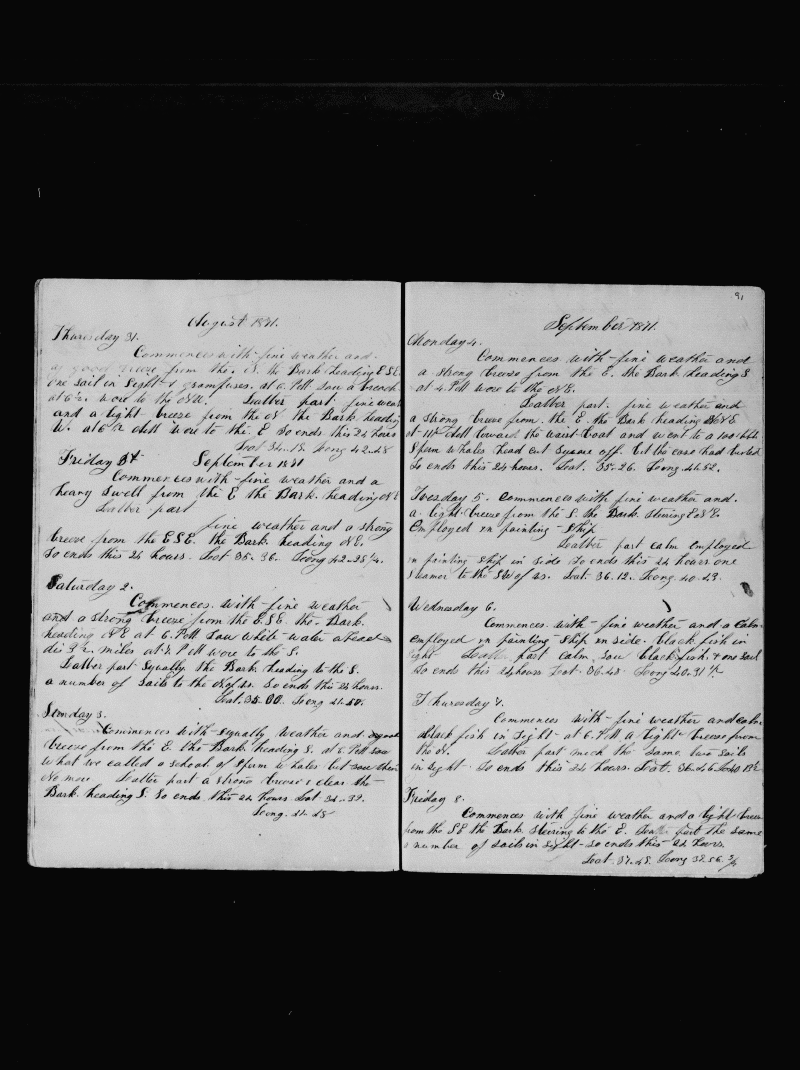 August 1871.
Thuresday 31.
Commences with fine weather and
a good breeze from the N. the Bark heading E S E
one sail in Sight & grampuses. at 6. P M saw a breach
at 6 ½. wore to the N W. Latter part fine weat
and a light breeze from the N the Bark heading
W. at 6 A M wore to the E So ends this 24 hours
Lat 34.15. Long 42.28
Friday September 1871
Commences with fine weather and a
heavy Swell from the E the Bark. heading N E
Latter part
fine weather and a strong
breeze from the E S E. the Bark heading N E.
So ends this 24 hours. Lat 35.36. Long 42.25
Saturday 2.
Commences. with fine weather
and a strong breeze from the E. S E. the Bark.
heading N E at 6. P M Saw white water ahead
miles at P M wore to the S.
Latter part Squally the Bark heading to the S.
a number of Sails to the of us. So ends this 24 hours.
Lat. 35.00. Long 41.50.
Sunday 3.
Commences with Squally weather and
breeze from the E. the Bark heading S. at 6 P M saw
what we called a school of Sperm Whales but saw them
No more Latter part a strong breeze & clear the
Bark heading S. So ends this 24 hours Lat 34.32.
Long. 41.45
91
September 1871.
Monday 4.
Commences with fine weather and
a strong breeze from the E. the Bark heading S
at 4 P M wore to the N E.
Latter part. fine weather and
a Strong breeze from the E. the Bark heading N E
at lowered the waist boat and went to a 100 bbl
Sperm Whales head cut Square off. but the case had bursted
So ends this 24 hours. Lat. 35.26. Long 41.52.
Tuesday 5. Commences with fine weather and.
a. light breeze from the S. the Bark. Steering E N E.
Employed in painting Ship
Latter part calm employed
in painting Ship in side So ends this 24 hours one
steamer to the S W of us. Lat. 36.12. Long 40.43.
Wednesday 6.
Commences with fine weather and a calm
employed in painting Ship in side. black fish in
sight. Latt part calm, saw blackfish. & one sail
So ends this 24 hours Lat. 36.43 Long 40.31
Thuresday 7.
Commences with fine weather and calm
black fish in Sight at 6. P M a light breeze from
the N. Latter part much the Same two sails
in sight. So ends this 24 hours. Lat. 36.46
Friday 8.
Commences with fine weather and a light breeze
from the S E the Bark Steering to the E. part the same
a number of sails in sight So ends this 24 hours.
Lat. 37.45. Long 38.56. ¾